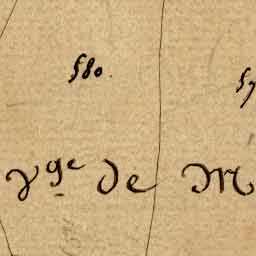 580.
57
vge de M